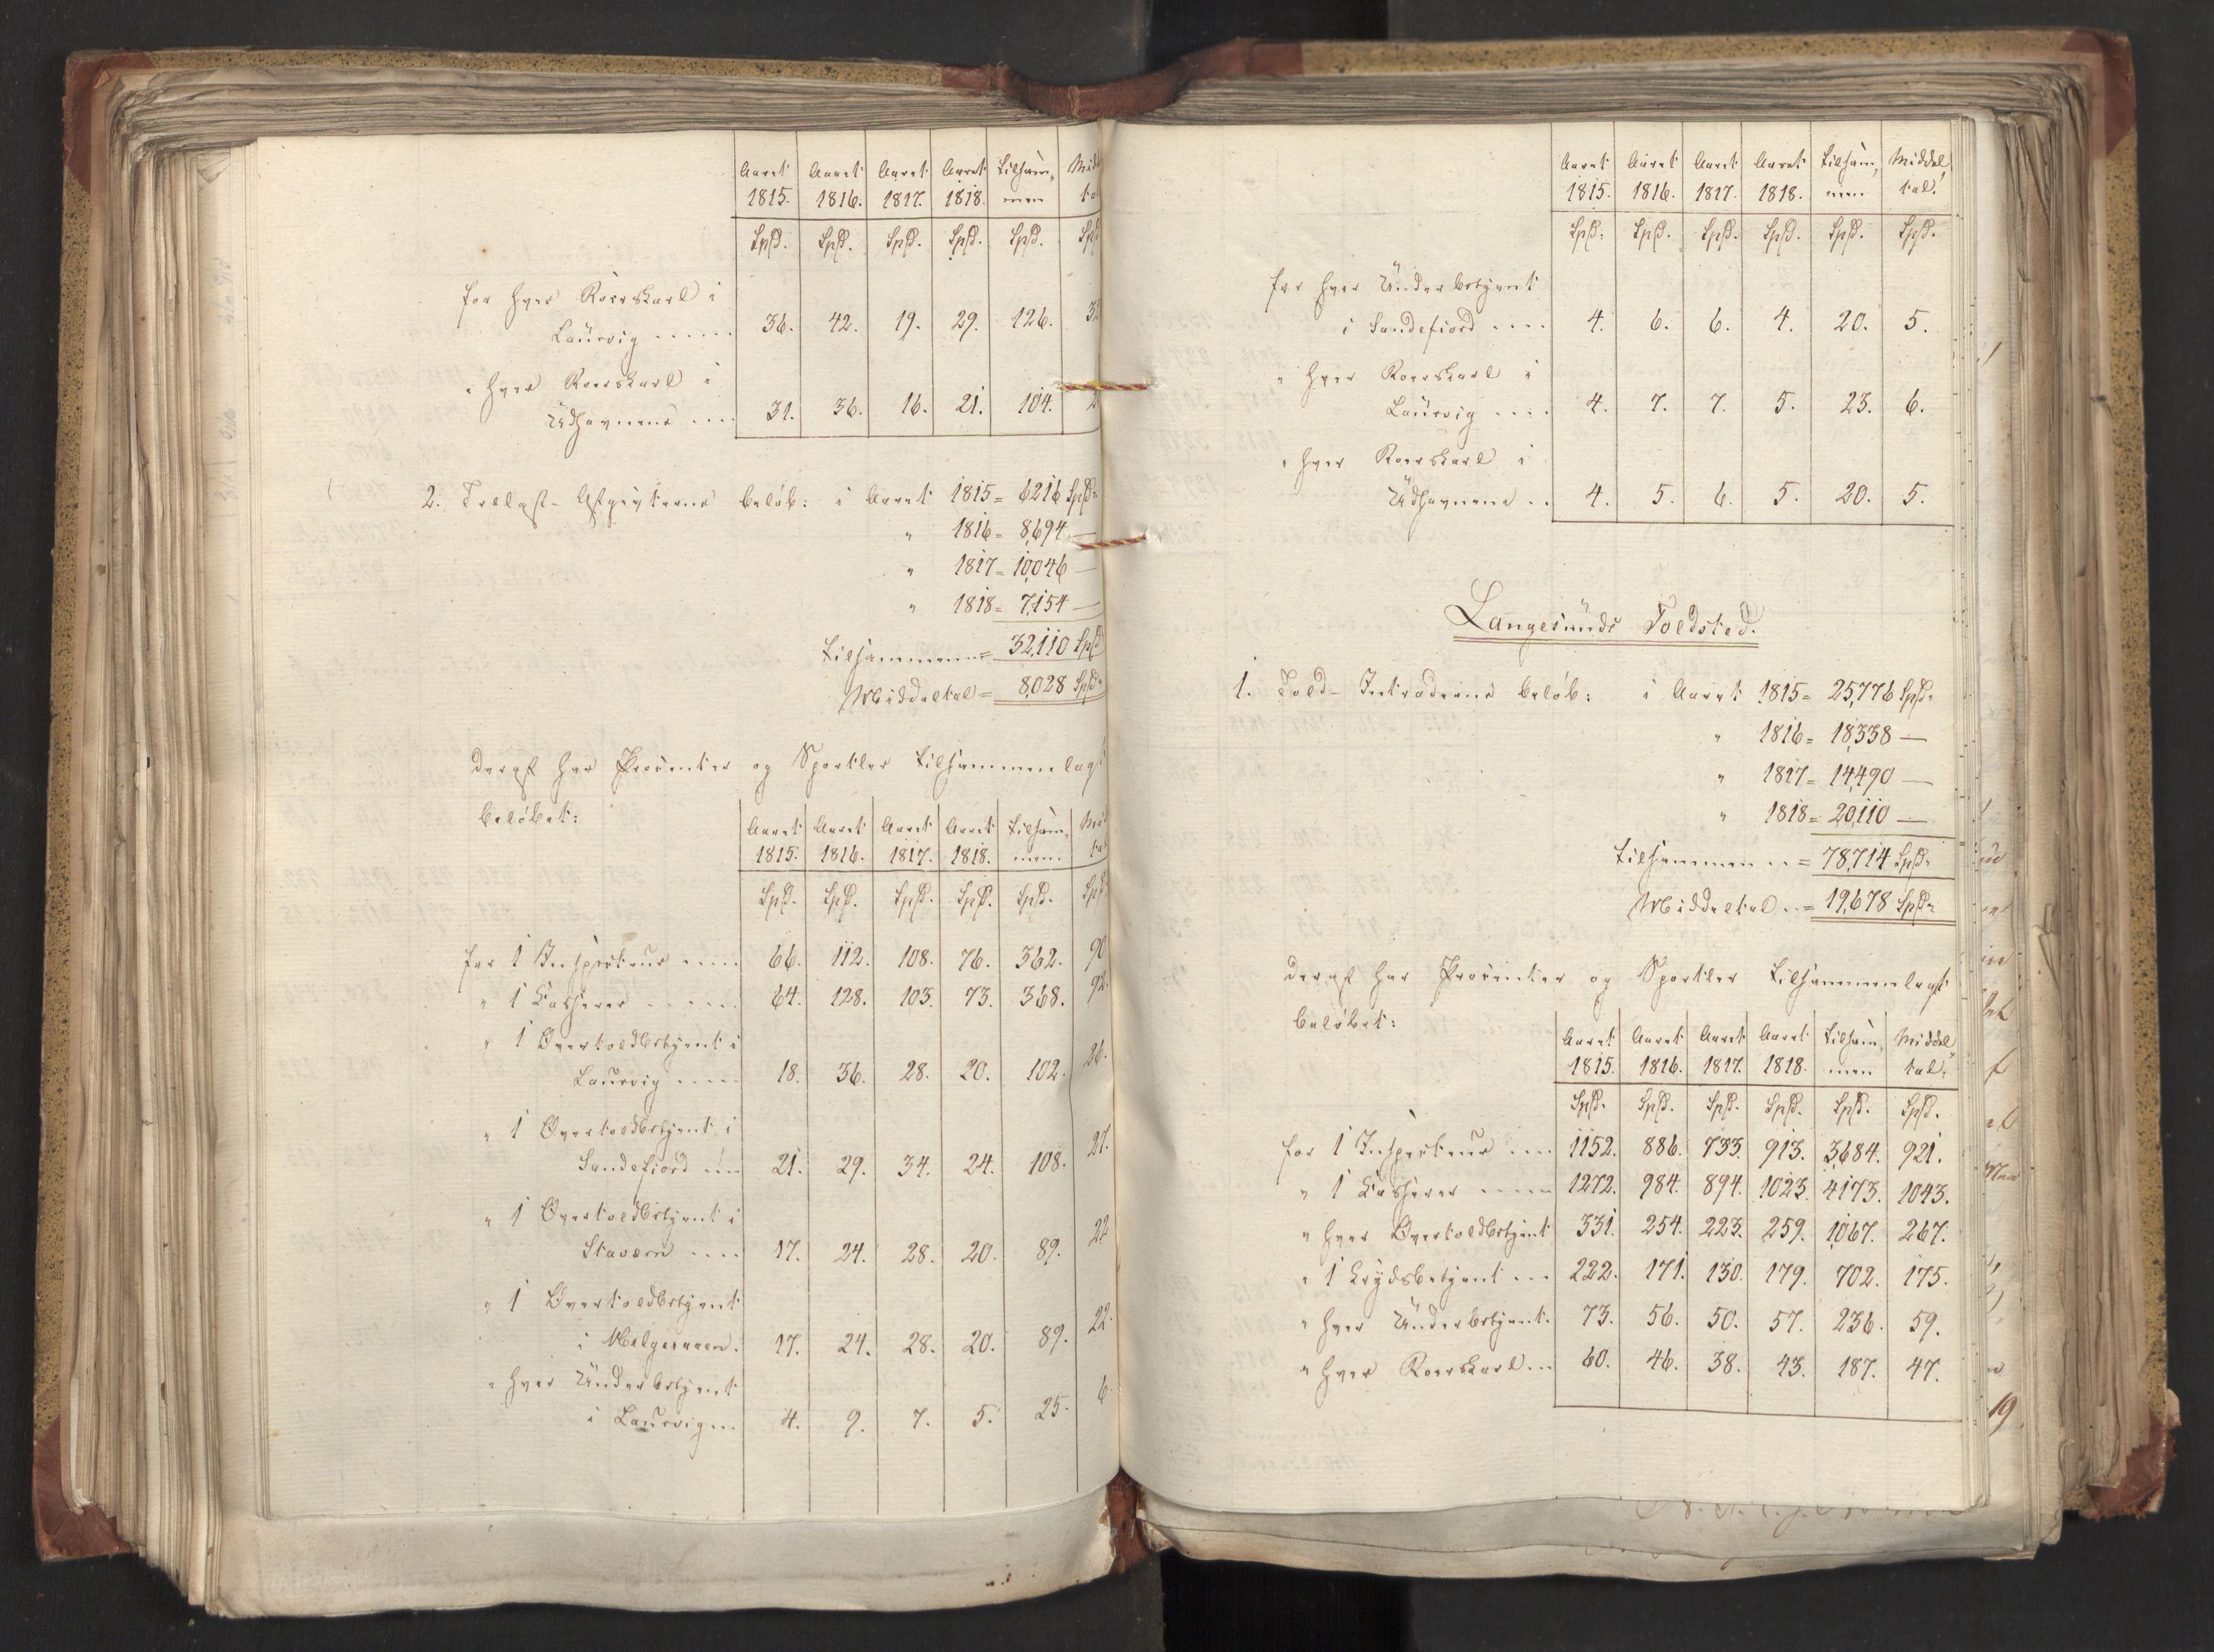 Aaret Aaret Aaret Aaret tilsam,
1815. 1816. 1817. 1818. men
Spd. Spd. Spd. Spd. Spd.
for hver Roerskarl i
Laurvig ----- 36. 42. 19. 29. 126.
" hver Roerskarl i
Udhavnene --- 31. 36. 16. 21. 104.
2. Trelast-Afgivterne beløb: i Aaret 1815= 6216 Spd.
" 1816= 8,694 —
" 1817= 10,046 —
" 1818= 7,154 —
tilsammen= 32,110 Spd
Middeltal= 8,028 Spd.
Deraf har Procenter og Sportler tilsammenlagt
beløbet:
Aaret Aaret Aaret Aaret tilsam,
1815. 1816. 1817. 1818. men.
Spd. Spd. Spd. Spd. Spd. Spd.
for 1 Inspecteur ---- 66. 112. 108. 76. 362. 90
" 1 Casserer ----- 64. 128. 103. 73. 368. 92.
" 1 Overtoldbetjent i
Laurvig ---- 18. 36. 28. 20. 102. 26.
" 1 Overtoldbetjent i
Sandefiord --- 21. 29. 34. 24. 108. 27.
" 1 Overtoldbetjent i
Stavern ---- 17. 24. 28. 20. 89. 22
" 1 Overtoldbetjent
i Helgeraaen. 17. 24. 28. 20. 89. 22.
" hver Underbetjent
i Laurvig -- 4. 9. 7. 5. 25. 6.
Aaret Aaret Aaret Aaret tilsam, Middel,
1815. 1816. 1817. 1818. men tal.
Spd. Spd. Spd. Spd. Spd. Spd.
for hver Underbetjent
i Sandefiord ---- 4. 6. 6. 4. 20. 5.
" hver Roerskarl i
Laurvig ---- 4. 7. 7. 5. 23. 6.
" hver Roerskarl i
Udhavnene -- 4. 5. 6. 5. 20. 5.
Langesunds Toldsted.
1. Told-Intraderne beløb: i Aaret 1815= 25,776 Spd.
" 1816= 18,338 —
" 1817= 14,490 —
" 1818= 20,110 —
tilsammen --= 78,714 Spd.
Middeltal --= 19,678 Spd.
Deraf har Procenter og Sportler tilsammenlagt
beløbet:
Aaret Aaret Aaret Aaret tilsam, Middel,
1815. 1816. 1817. 1818. men tal.
Spd. Spd. Spd. Spd. Spd. Spd.
for 1 Inspecteur --- 1152. 886. 733. 913. 3,684. 921.
" 1 Casserer ----- 1272. 984. 894. 1023. 4173. 1043.
" hver Overtoldbetjent 331. 254. 223. 259. 1,067. 267.
" 1 Krydsbetjent --- 222. 171. 130. 179. 702. 175.
" hver Underbetjent. 73. 56. 50. 57. 236. 59.
" hver Roerskarl --- 60. 46. 38. 43. 187. 47.
19